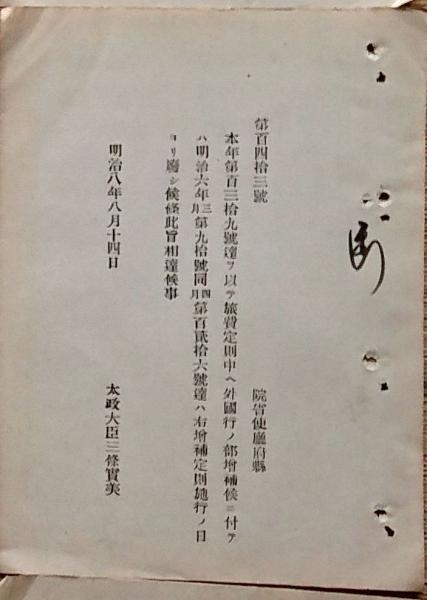 第百四拾三號
院省使廳府縣
本年第百三拾九號達ヲ以テ旅費定則中ヘ外國行ノ部増補候ニ付テ
ハ明治六年三月第九拾號同四月第百貳拾六號達ハ右増補定則施行ノ日
ヨリ廢シ候條此旨相達候事
明治八年八月十四日
太政大臣三條實美